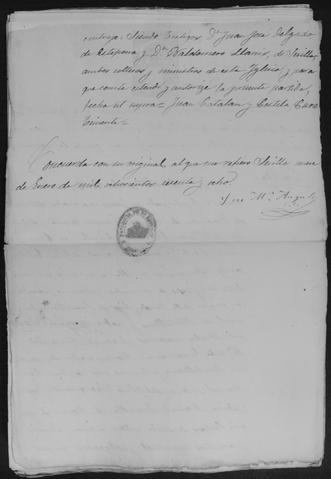 contrajo: Siendo testigos Dn. Juan José Delgado
de Estepona y Dn. Baldomero Llamo, de Sevilla
ambos solteros y ministros de esta Yglesia y para
que conste estendi y autorize la presente partida,
fecha ut supra = Juan Catalan y Castela Cura
Teniente =
Concuerda con su original, al que me refiero Sevilla nueve
de Enero de mil ochocientos sesenta y ocho.
José Ma. Angulo